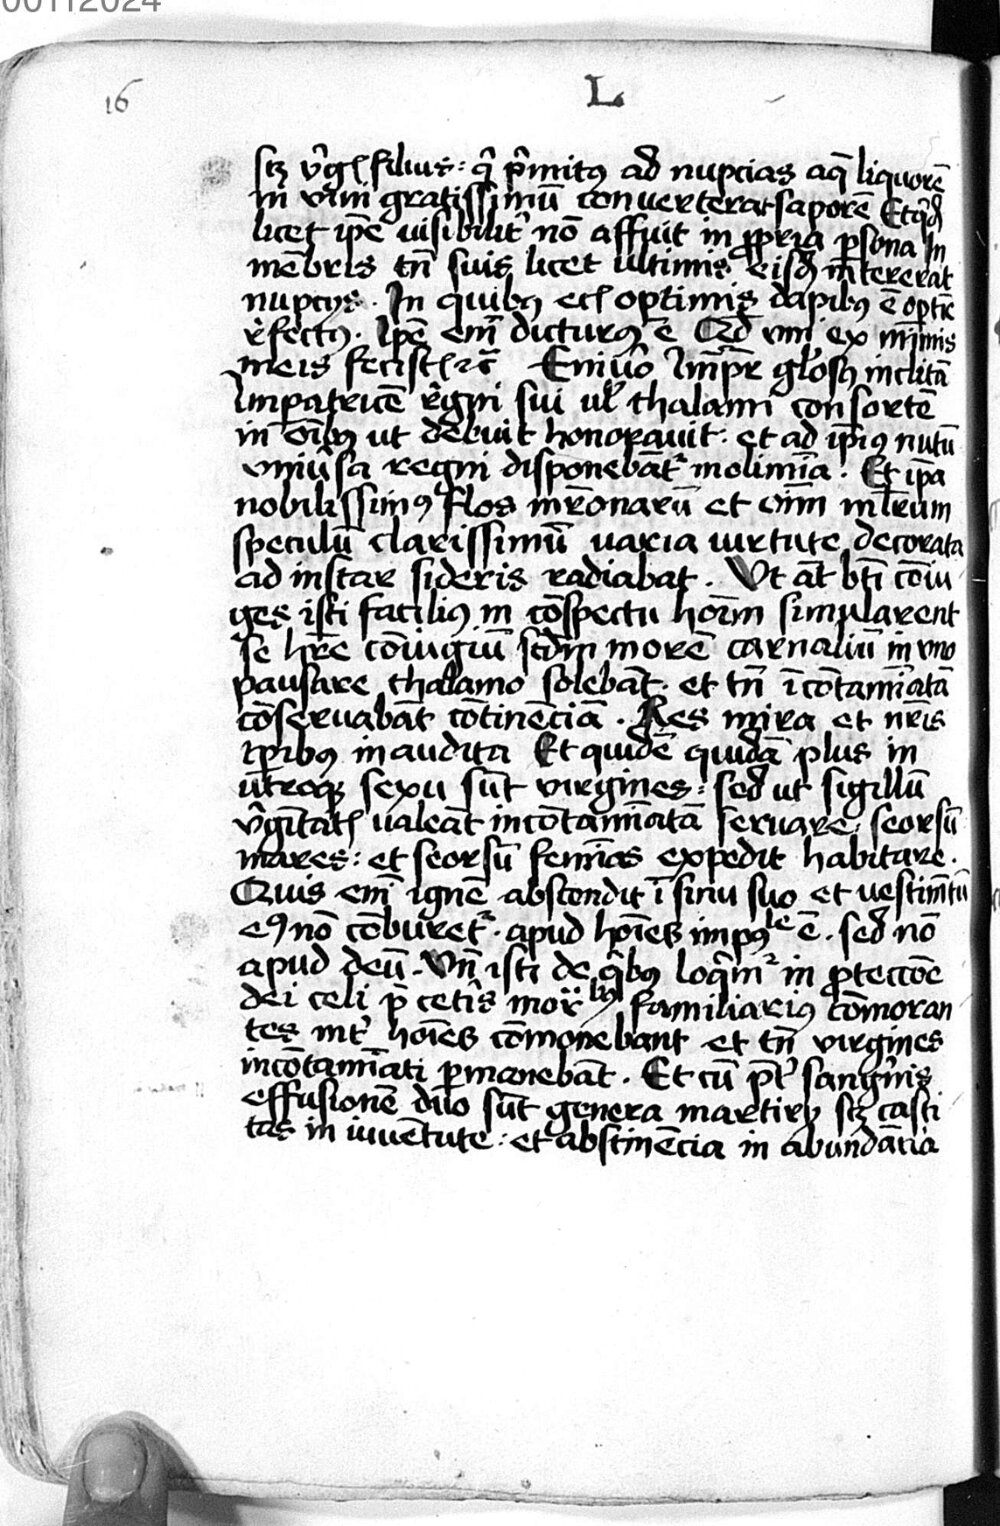 00112024
16 L
scꝫ v̓gĩs filius : q̓ p̓mitꝰ ad nupcias aq̃ liquorẽ
in vini gratissimũ conuerterat saporẽ Et qđ
licet ip̃e uisibilit̓ nõ affuit in ꝓpria ꝑsona In
mẽbris tñ suis licet ultimis eisđ int̓ererat
nupcijs . In quibꝰ eciã optimis dapibꝰ ẽ optĩe
r̓fectꝰ . Ip̃e em̃ dicturꝰ ẽ Qđ vni ex minimis
meis fecistis ⁊c̃ Enĩuo Imp̃r gl̃osꝰ inclitã
Impatricẽ r̓gni sui ul̃ thalami consortẽ
in õibꝰ ut debuit honorauit : et ad ip̃iꝰ nutũ
vniũsa regni disponebãt̓ molimĩa . Et ip̃a
nobilissimꝰ flos mr̃onarũ et oĩm ml̃rum
speculũ clarissimũ uaria uirtute decorata
ad instar sideris radiabat . Ut aũt bt̃i cõiu
ges isti faciliꝰ in cõspectu hoĩm simularent
se hr̃e cõiugiũ scđm morẽ carnaliũ in vno
pausare thalamo solebãt . et tñ ĩcõtamĩatã
cõseruabãt cõtinẽciã . Res mira et nr̃is
tp̃ribꝰ in audita Et quidẽ quidã plus in
ut̓oqꝫ sexu sũt virgines : sed ut sigillũ
v̓gĩtatis ualeãt incõtamĩatã seruare . seorsũ
mares : et seorsũ femĩas expedit habitare .
Quis em̃ ignẽ abscondit ĩ sinu suo et uestimẽtũ
eꝰ nõ cõburet̓ . apud hoĩes impꝰˡᵉ ẽ . sed nõ
apud deũ . Vñ isti de q̓bꝰ loq̃m̓ in ꝓteccõe
dei celi p̃ cet̓is mor̃ibꝰ familiariꝰ cõmoran
tes int̓ hoĩes cõmonebant et tñ virgines
incõtamĩati ꝑmanebãt . Et cũ p̃t̓ sangũis
effusionẽ duo sũt genera martirꝝ scꝫ casti
tas in iuuẽtute : et abstinẽcia in abundãcia